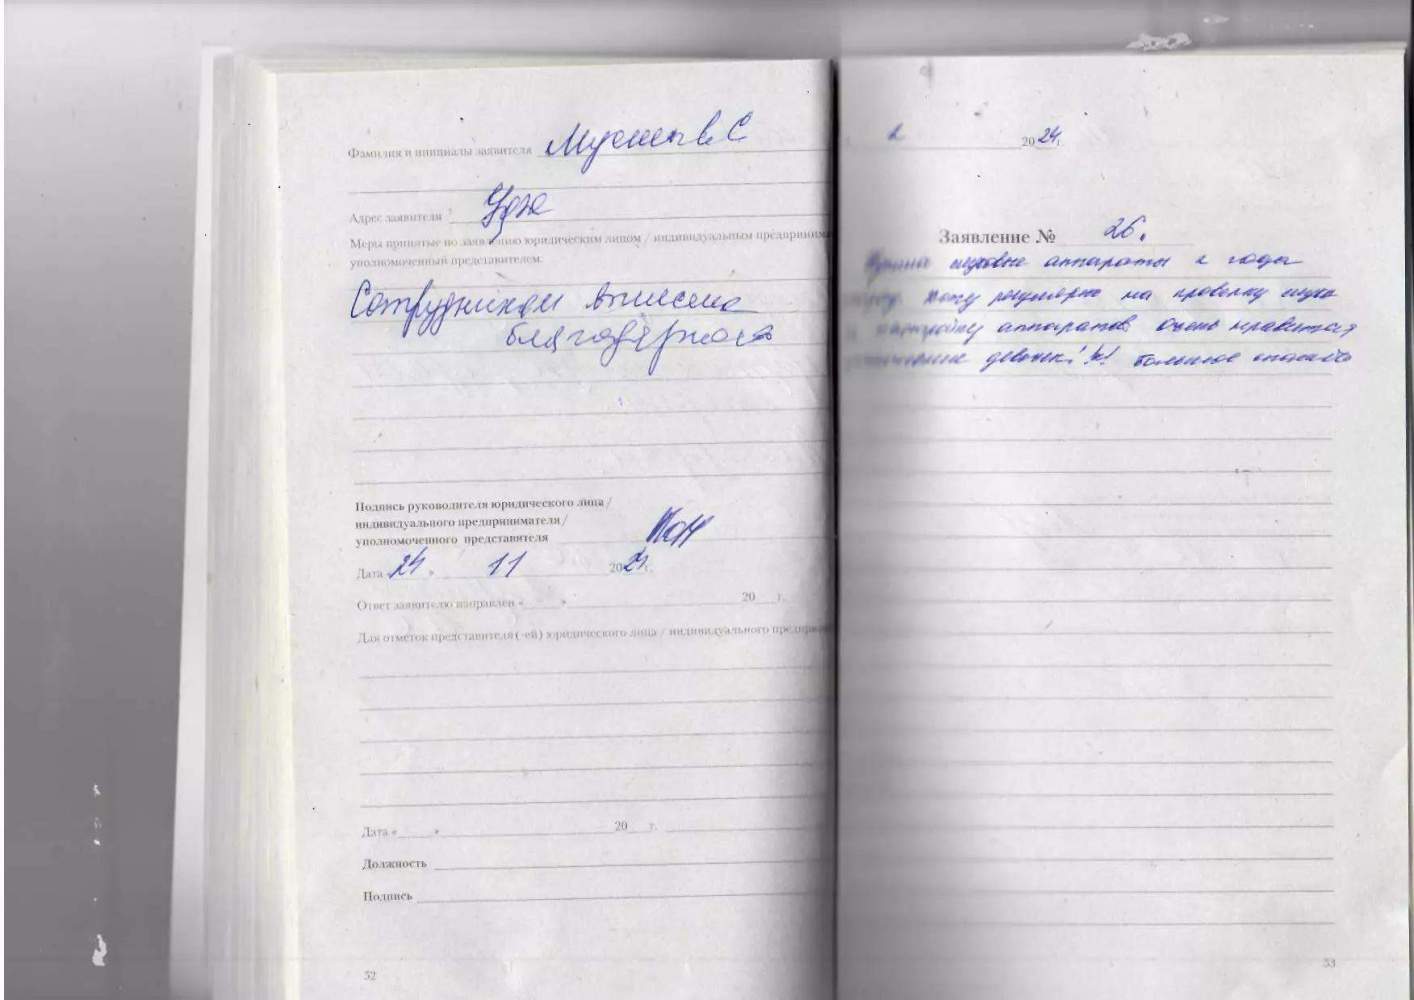 Фамилия и инициалы заявителя
Адрес заявителя
Меры принятые по заявлению юридическим лицом / индивидуальным
уполномоченный представителем.
Сотрудникам вынесена
благодарность
Подпись руководителя юридического лица /
индивидуального предпринимателя /
уполномоченного представителя
Дата 24 » 11 2024 г.
Ответ заявителю направлен « » 20 г.
Для отметок представителя (-ей) юридического лица / индивидуального
Дата « » 20 г.
Должность
Подпись
52
2024 г.
Заявление № 26.
слуховые аппараты 2 года
Хожу регулярно на проверку слуха
настройку аппаратов. Очень нравится
девочек!!! Большое спасибо
53